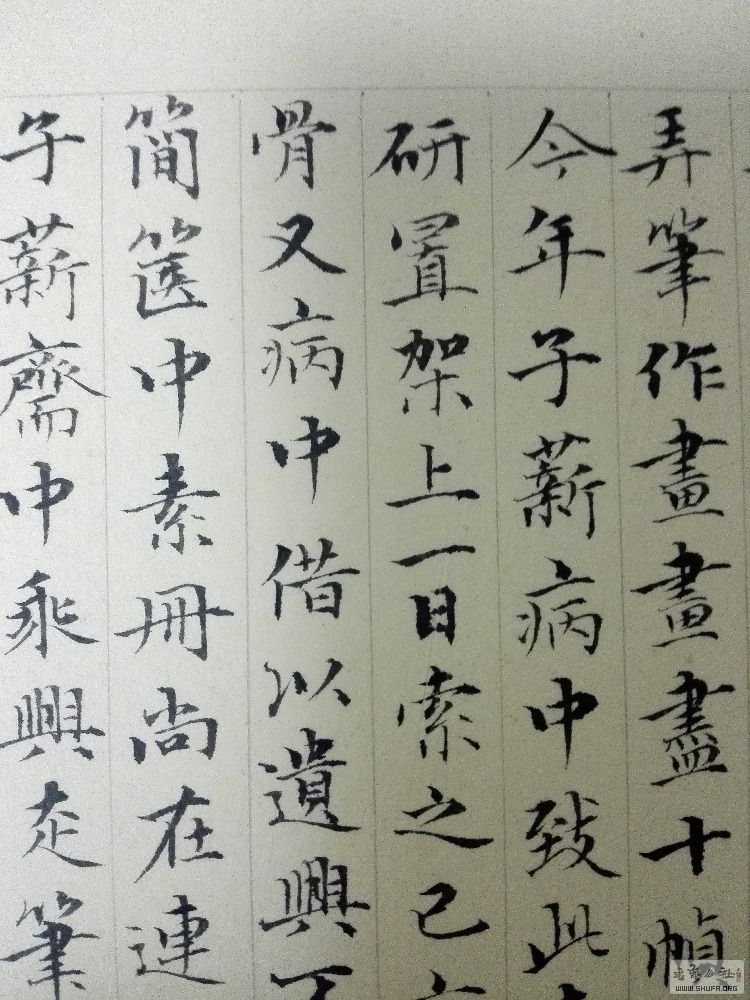 弄筆作畫畫盡十幀
今年子薪病中致此
研置架上一日索之已
骨又病中借以遺興
簡篋中素冊尚在連
子薪齋中乘興走筆
WWW.SHUFA.ORG